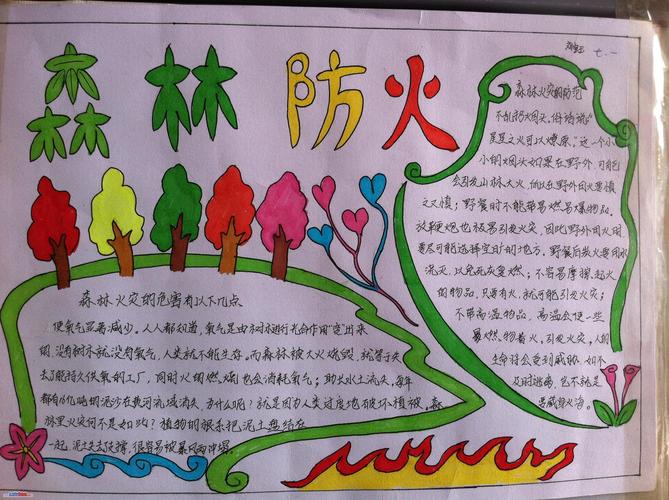 森林防火
七.一
森林火灾的防范
不乱扔烟头,俗话说“
星星之火可以燎原”,这一个小
小的烟头如果在野外,可能
会引发山林大火,所以在野外用火要慎
之又慎;野餐时不能带易燃易爆物品。
放鞭炮也极易引发火灾,因此野外用火时
要尽可能选择空旷的地方,野餐后将火要用水
浇灭,以免死灰复燃;不容易摩擦起火
的物品,只要有火,就可能引发火灾;
不带高温物品,高温会使一些
易燃物着火,引发火灾,人的
生命将会受到威胁,如不
及时逃离,也不就是
葬身火海。
森林火灾的危害有以下几点
使氧气显著减少。人人都知道,氧气是由树木进行光合作用“造”出来
的,没有树木就没有氧气,人类就不能生存。而森林被大火烧毁,就等于失
去了能持久供氧的工厂,同时火的燃烧也会消耗氧气;助长水土流失,每年
都有16亿吨的泥沙在黄河流域消失,为什么呢?就是因为人类过度地破坏植被,森
林里火灾何不是如此?植物的根系把泥土盘结在
一起,泥土失去保障,很容易被暴风雨冲塌。